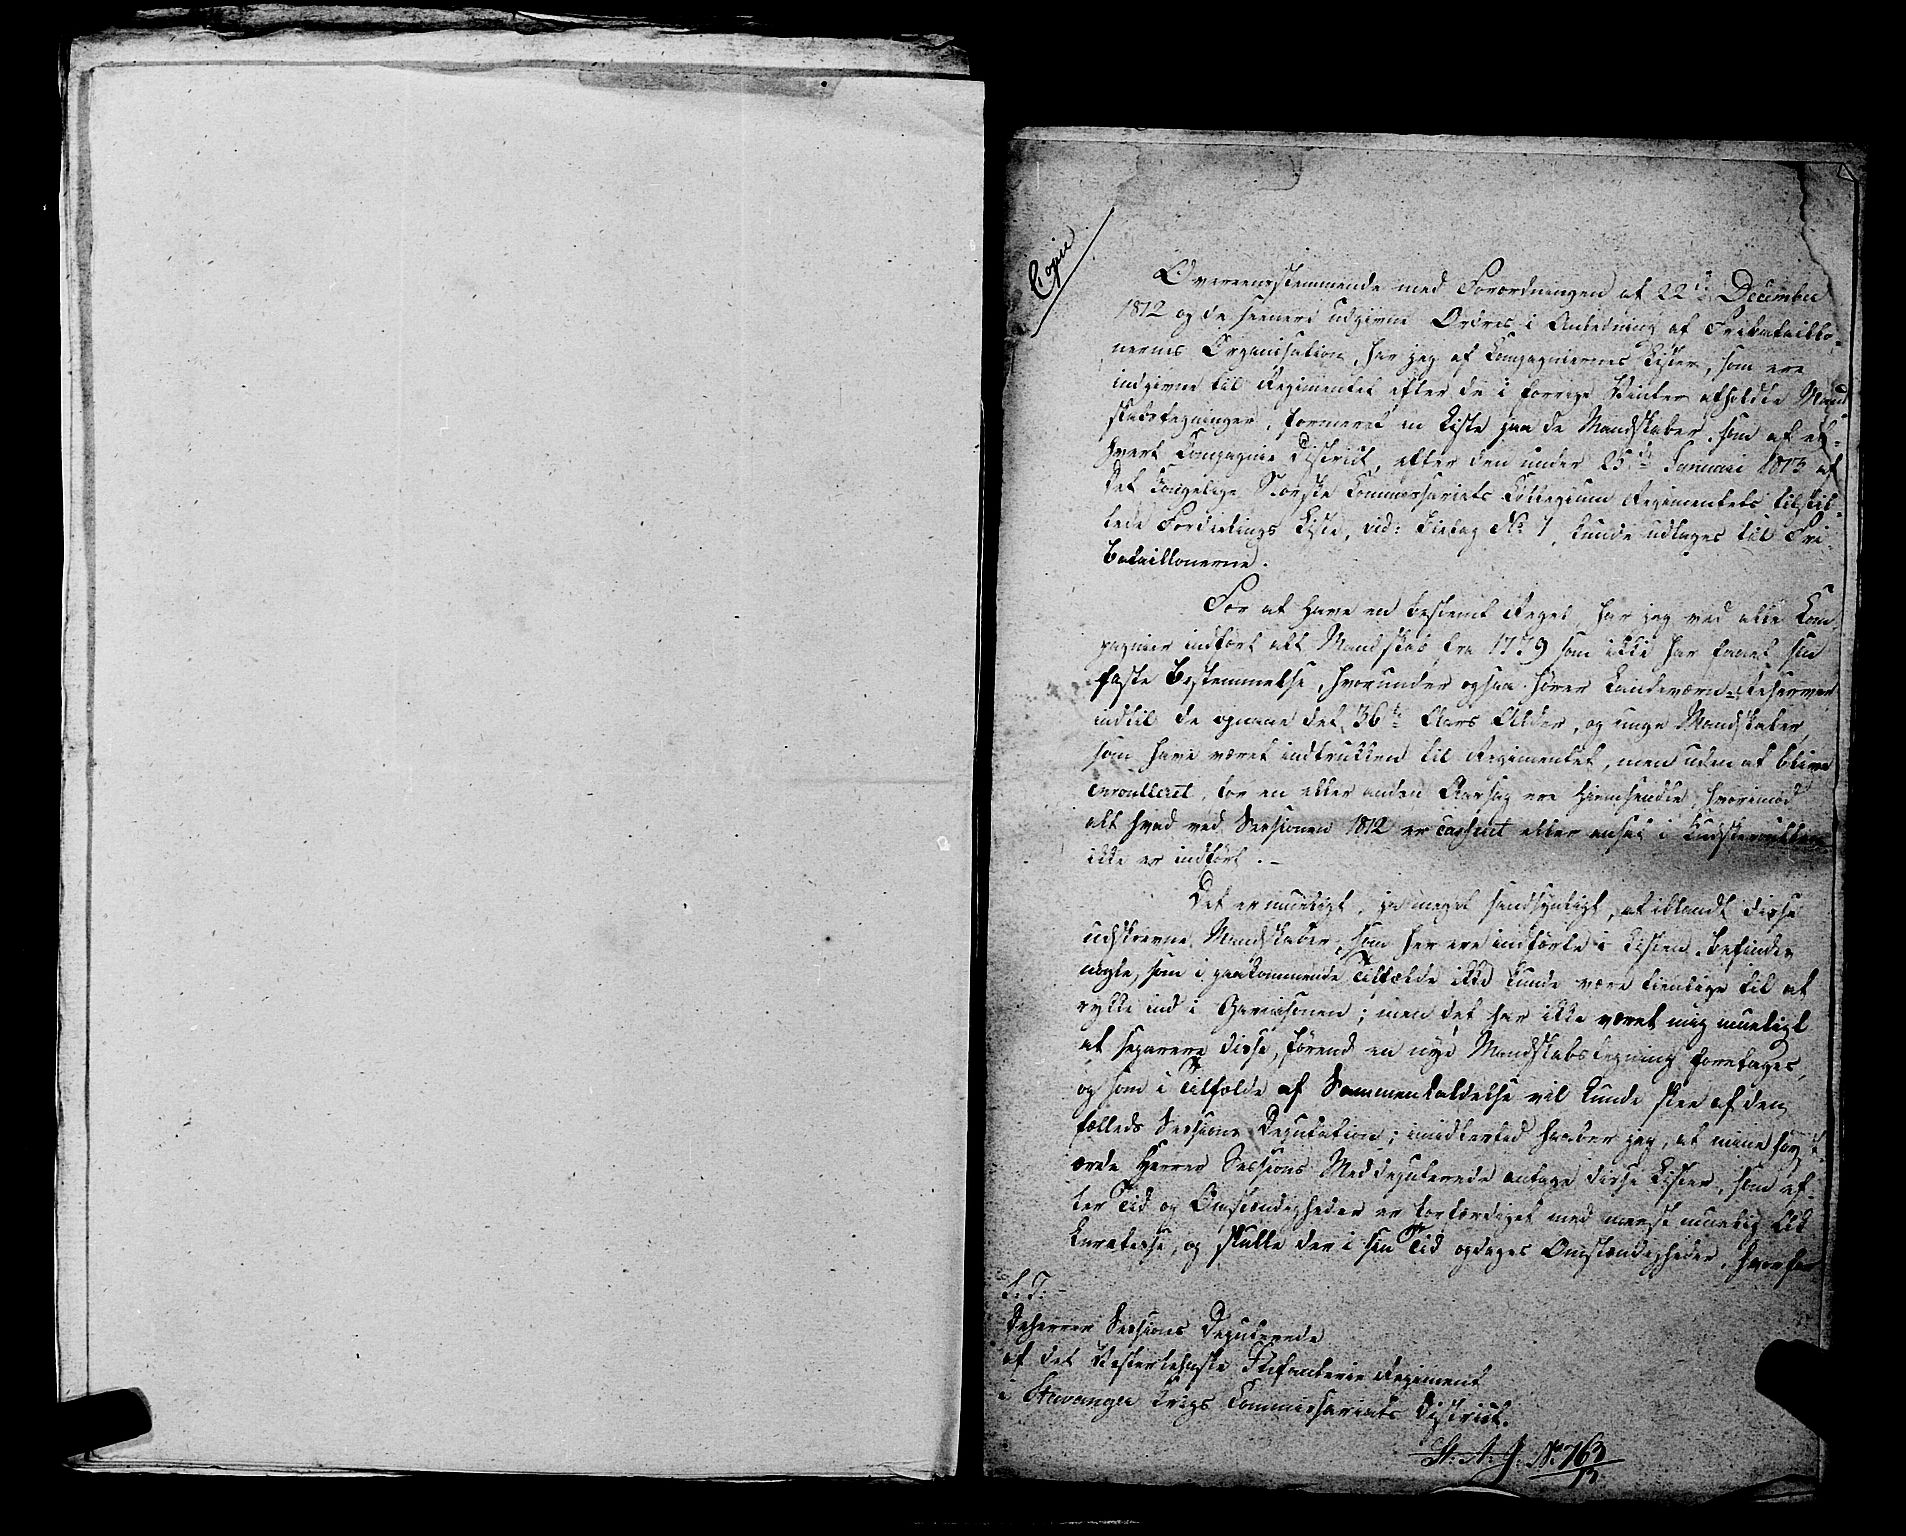 Copie
Overeensstemmende med Forordningen af 22de December
1812 og de seenere udgivne Ordres i Anledning af Fribataillo-
nernes Organisation, har jeg af Compagniernes Lister, som ere
indgivne til Regimentet efter de i forrige Vinter afholdte Mand
skabstegninger, formeret en Liste paa de Mandskaber, som af et-
hvert Compagnie District, efter den under 25de Januari 1813 af
det kongelige Norske Commissariats Collegium Regimentets tilstil-
lede Fordelings Liste, vid: Bielag No 1, kunde udtages til Fri-
Bataillonerne.
For at have en bestemt Regel, har jeg ved alle Com-
pagnier indført alt Mandskab fra 1779 som ikke har faaet sin
faste Bestemmelse, hvorunder ogsaa hører Landeværn-Reserver
indtil de opnaae det 36te Aars Alder, og unge Mandskaber,
som have været indtrukken til Regimentet, men uden at blive
enroulleret, for en eller anden Aarsag ere hiemsendte, hvorimod
alt hvad ved Sessionen 1812 er casseret eller ansat i
ikke er indført. –
Det er mueligt, ja meget sandsynligt, at iblandt disse
udskrevne Mandskaber, som her ere indførte i Listen, befindes
nogle, som i paakommende Tilfælde ikke kunde være tienlige til at
rykke ind i Garnisonen; men det har ikke været mig mueligt
at separere disse, førend en nye Mandskabstegning foretages,
og som i Tilfælde af Sammenkaldelse vil kunde skee af den
fælleds Sessions Deputation; imidlertid haaber jeg, at mine høyst-
ærede Herrer Sessions Meddeputerede antage disse Lister, som ef-
ter Tid og Omstændigheder er forfærdiget med meest muelig Ac-
kuratesse, og skulle der i sin Tid opdages Omstændigheder, hvorfor
S: T:
De herrer Sessions Deputerede
af det Vesterlehnske Infanterie Regiment
i Stavanger Krigs Commissariats District.
St: A: J. No 763
/13